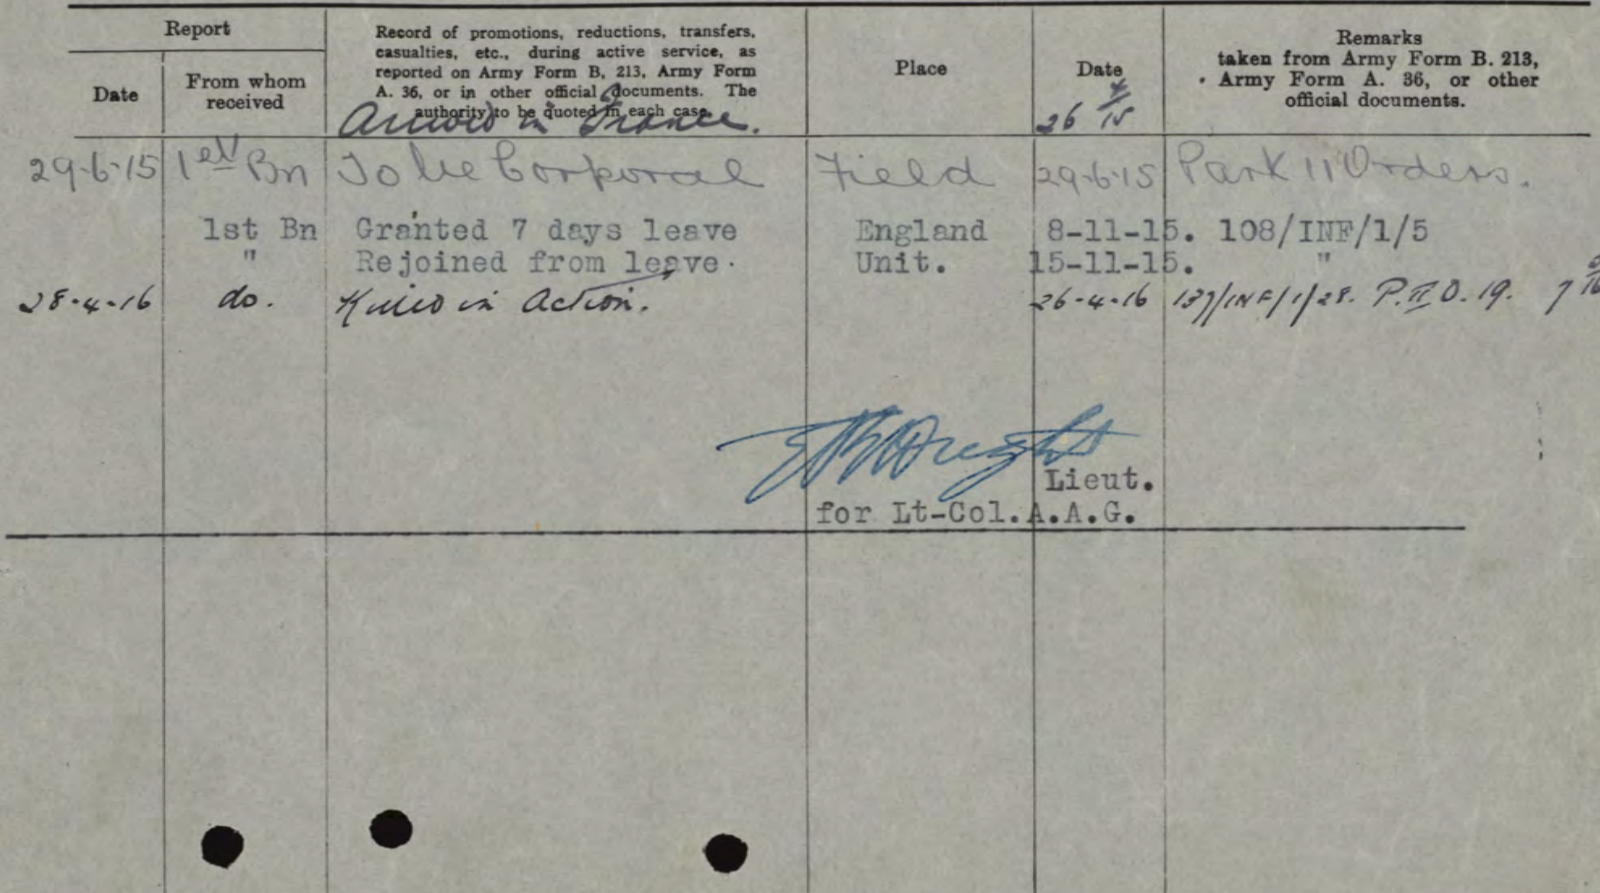 Report
Date
From whom
received
Record of promotions, reductions, transfers,
casualties, etc., during active service, as
reported on Army Form B. 213, Army Form
A. 36, or in other official documents. The
authority to be quoted in each case.
Place
Date
Remarks
taken from Army Form B. 213,
Army Form A. 36, or other
official documents.
Arrived in France. 26 4/15
29-6-15 1st Bn To be Corporal Field 29-6-15 Part 11 Orders.
1st Bn Granted 7 days leave England 8-11-15. 108/INF/1/5
" Rejoined from leave. Unit. 15-11-15. "
28-4-16 do. Killed in Action. 26-4-16 137/INF/1/28. P.II.O. 19.
Lieut.
for Lt-Col.A.A.G.